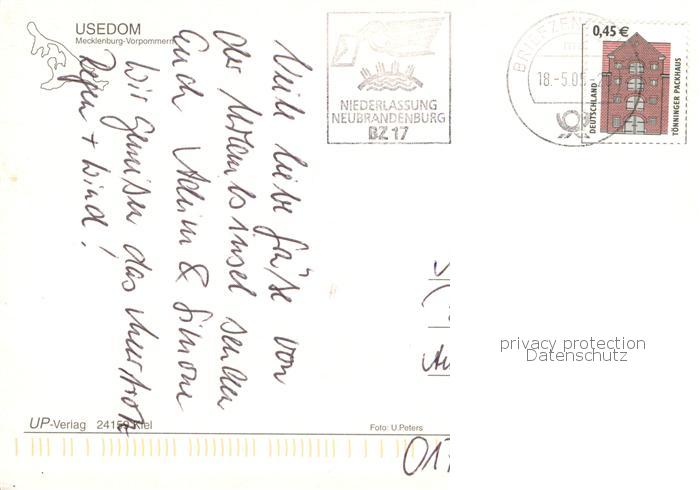 USEDOM
Mecklenburg-Vorpommern
NIEDERLASSUNG
NEUBRANDENBURG
BZ 17
BRIEFZEN
18.-5.05-
0,45 €
DEUTSCHLAND
TÖNNINGER PACKHAUS
Viele liebe Grüße von
der Urlaubsinsel senden
Euch Achim & Simone
Wir genießen das Meer trotz
Regen + Wind!
privacy protection
Datenschutz
UP-Verlag 24159 Kiel
Foto: U.Peters
017